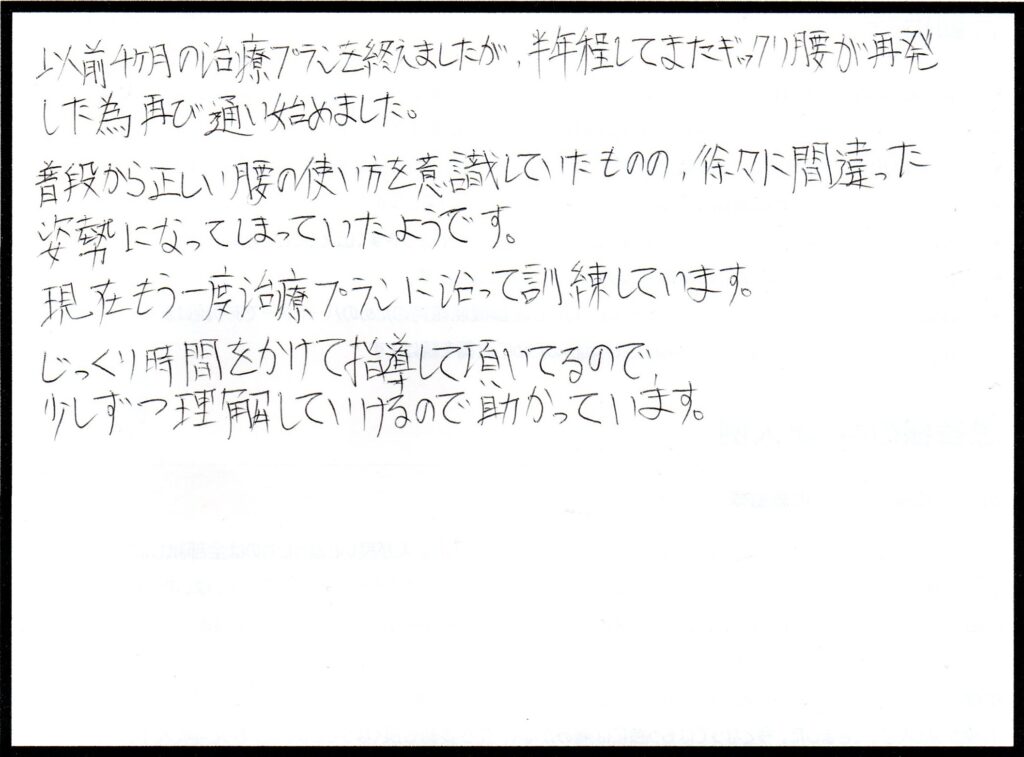 以前4ヶ月の治療プランを終えましたが、半年程してまたギックリ腰が再発
した為再び通い始めました。
普段から正しい腰の使い方を意識していたものの、徐々に間違った
姿勢になってしまっていたようです。
現在もう一度治療プランに沿って訓練しています。
じっくり時間をかけて指導して頂いてるので、
少しずつ理解していけるので助かっています。